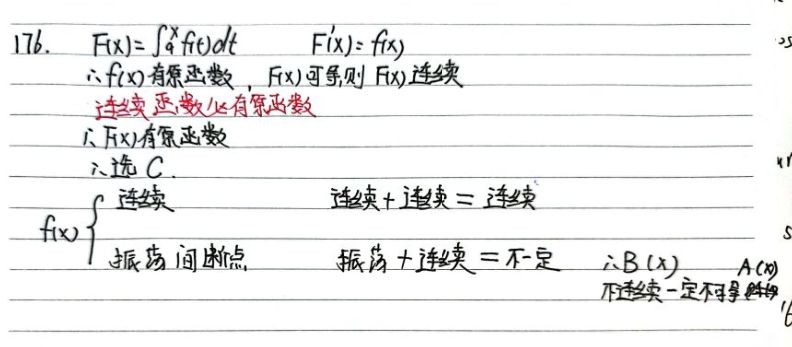 176. F(x)=∫ₐˣf(t)dt F'(x)=f(x)
∴f(x)有原函数，F(x)可导则F(x)连续
连续函数必有原函数
∴F(x)有原函数
∴选 C.
f(x) { 连续 连续+连续=连续
振荡间断点 振荡+连续=不一定 ∴B(x) A(x)
不连续一定不可导